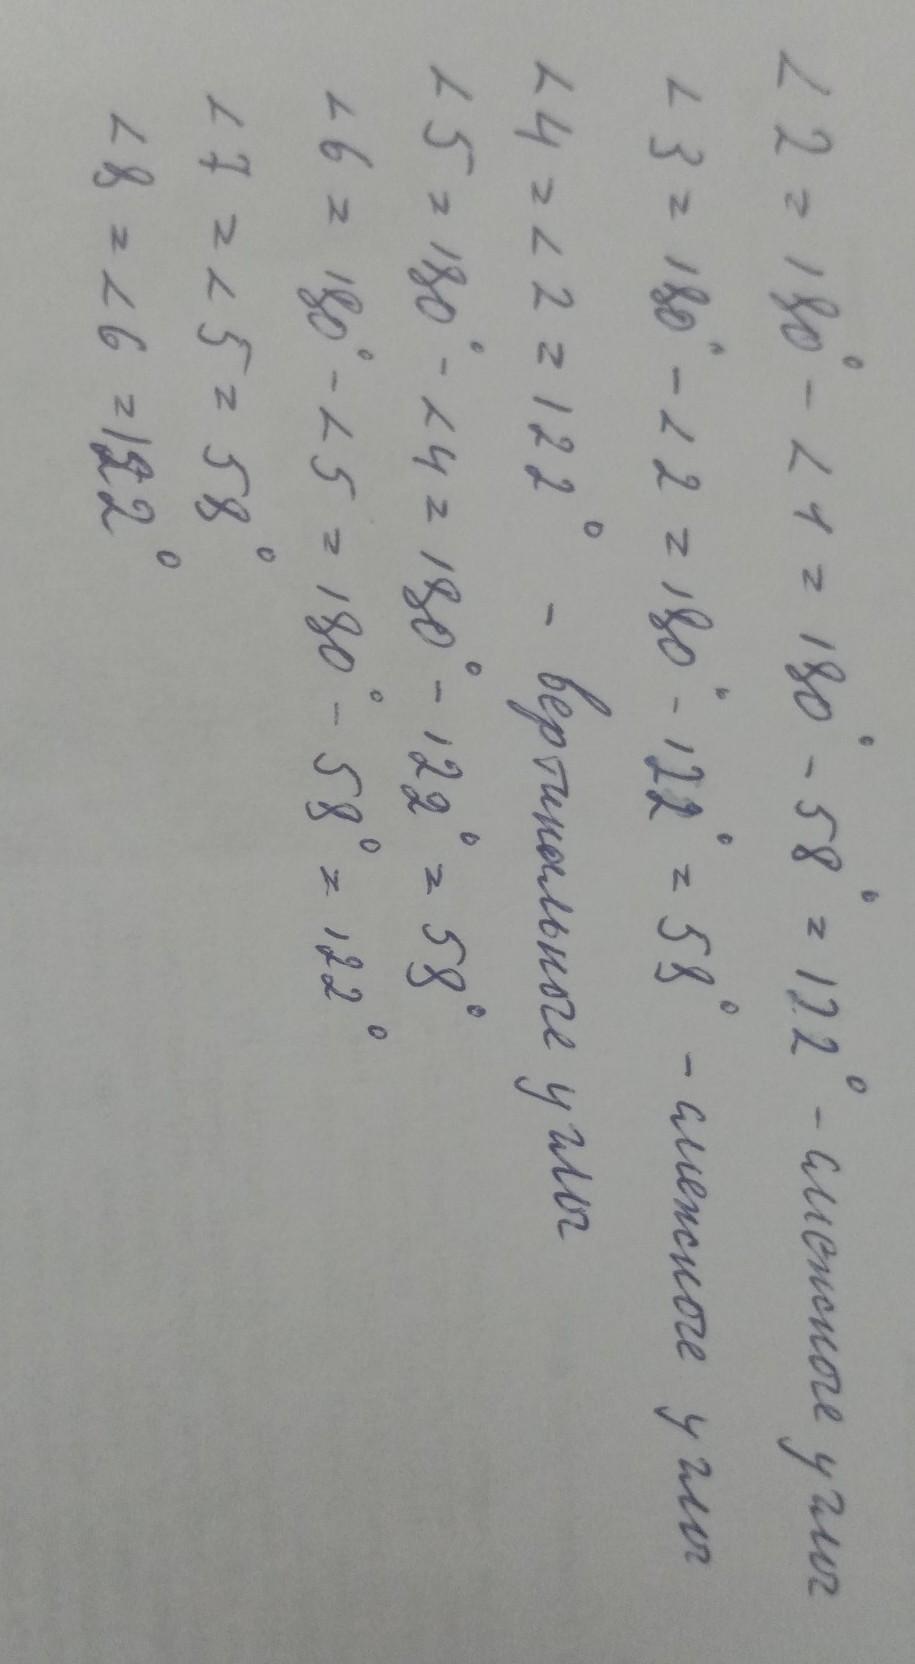 ∠2 = 180° - ∠1 = 180° - 58° = 122° - смежные углы
∠3 = 180° - ∠2 = 180° - 122° = 58° - смежные углы
∠4 = ∠2 = 122° - вертикальные углы
∠5 = 180° - ∠4 = 180° - 122° = 58°
∠6 = 180° - ∠5 = 180° - 58° = 122°
∠7 = ∠5 = 58°
∠8 = ∠6 = 122°